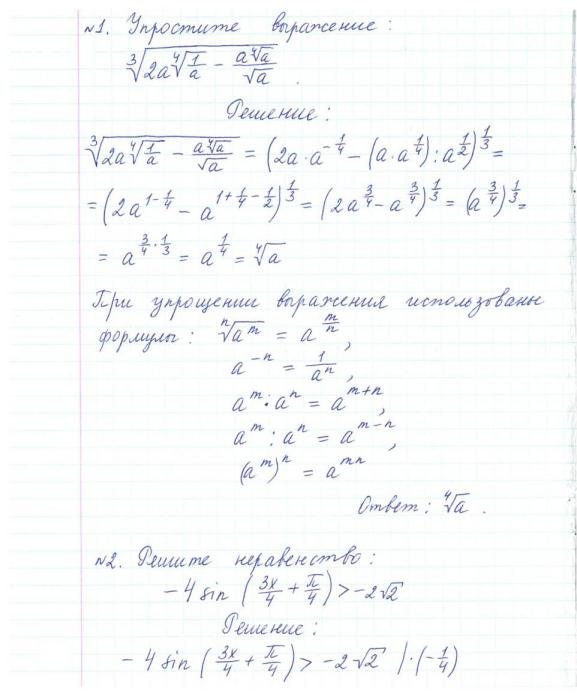 №1. Упростите выражение:
∛(2a ∜(1/a) − (a∜a)/√a) .
Решение:
∛(2a ∜(1/a) − (a∜a)/√a) = (2a · a^(−1/4) − (a · a^(1/4)) : a^(1/2))^(1/3) =
= (2a^(1−1/4) − a^(1+1/4−1/2))^(1/3) = (2a^(3/4) − a^(3/4))^(1/3) = (a^(3/4))^(1/3) =
= a^(3/4 · 1/3) = a^(1/4) = ∜a
При упрощении выражения использованы
формулы: ⁿ√(a^m) = a^(m/n),
a^(−n) = 1/a^n,
a^m · a^n = a^(m+n),
a^m : a^n = a^(m−n),
(a^m)^n = a^(mn)
Ответ: ∜a .
№2. Решите неравенство:
−4 sin (3x/4 + π/4) > −2√2
Решение:
−4 sin (3x/4 + π/4) > −2√2 | · (−1/4)